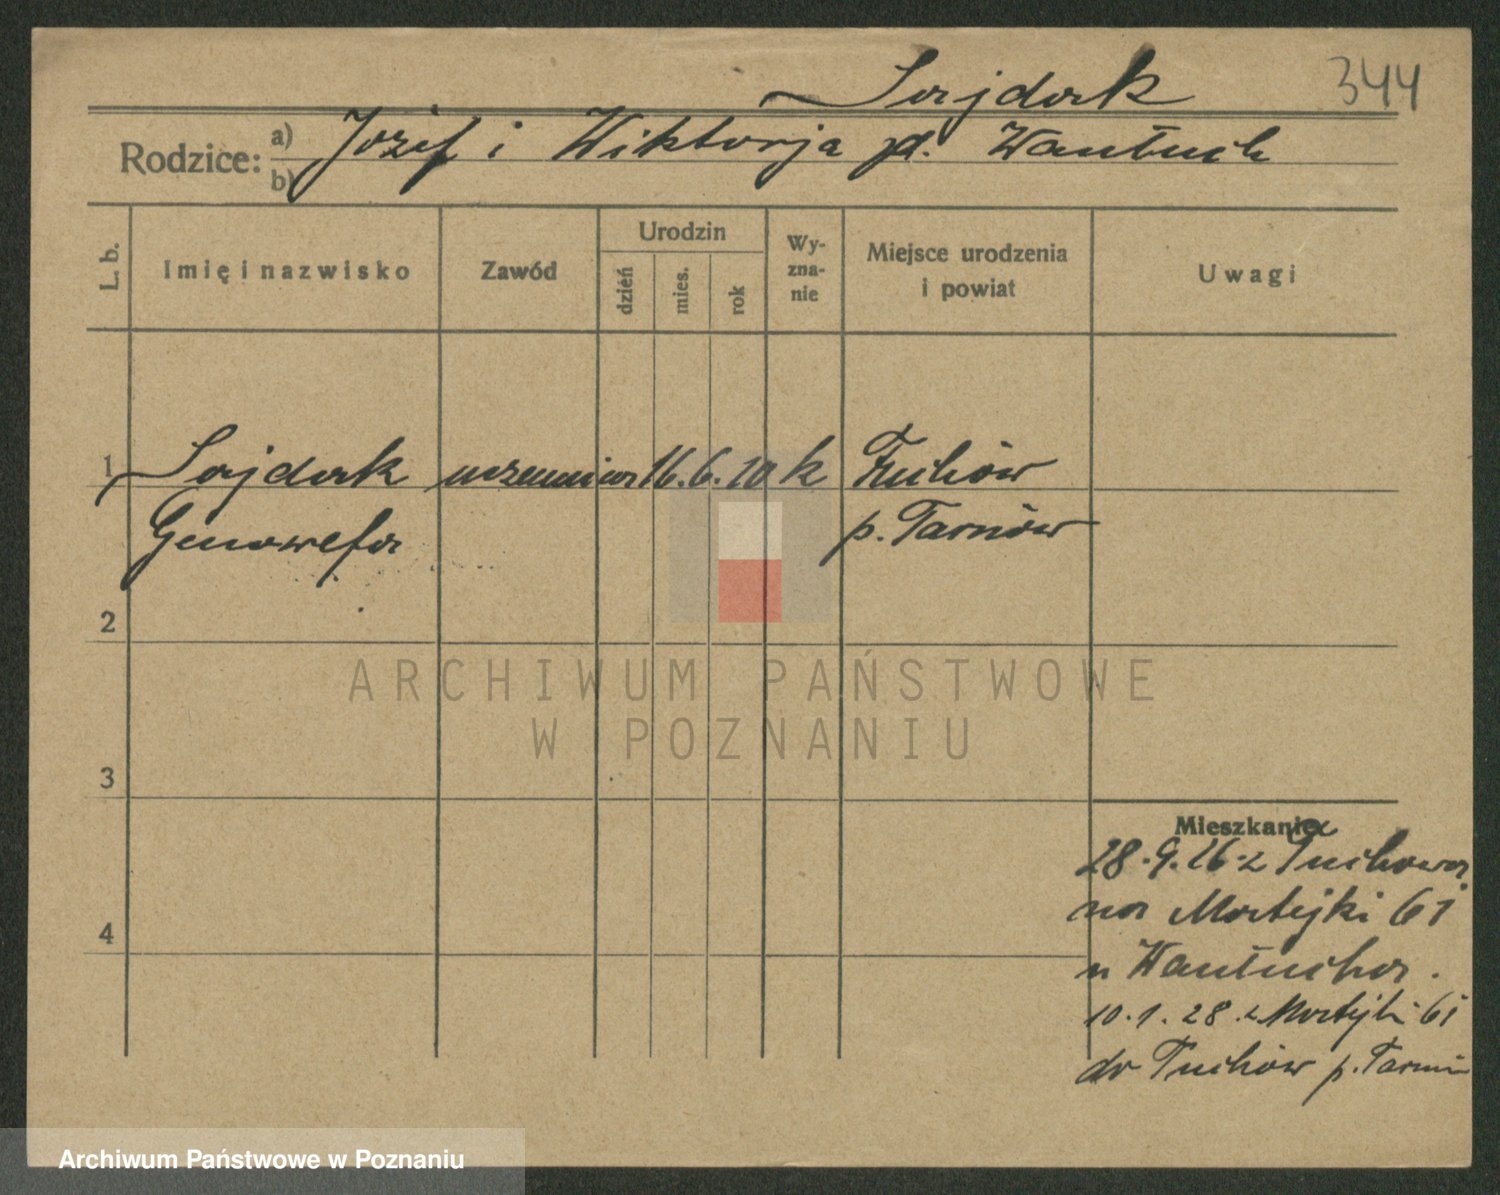 Sajdak 344
Rodzice: a) Józef i Wiktorja zd. Wantuch
b)
L. b. Imię i nazwisko Zawód Urodzin dzień mies. rok Wy-zna-nie Miejsce urodzenia i powiat Uwagi
1 Sajdak uczennica 16. 6. 10 k Tuchów
Genowefa p. Tarnów
2
3
4
Mieszkanie
28.9.26 z Tuchowa
na Matejki 61
u Wantucha.
10.1.28 z Matejki 61
do Tuchów p. Tarnów
ARCHIWUM PAŃSTWOWE
W POZNANIU
Archiwum Państwowe w Poznaniu